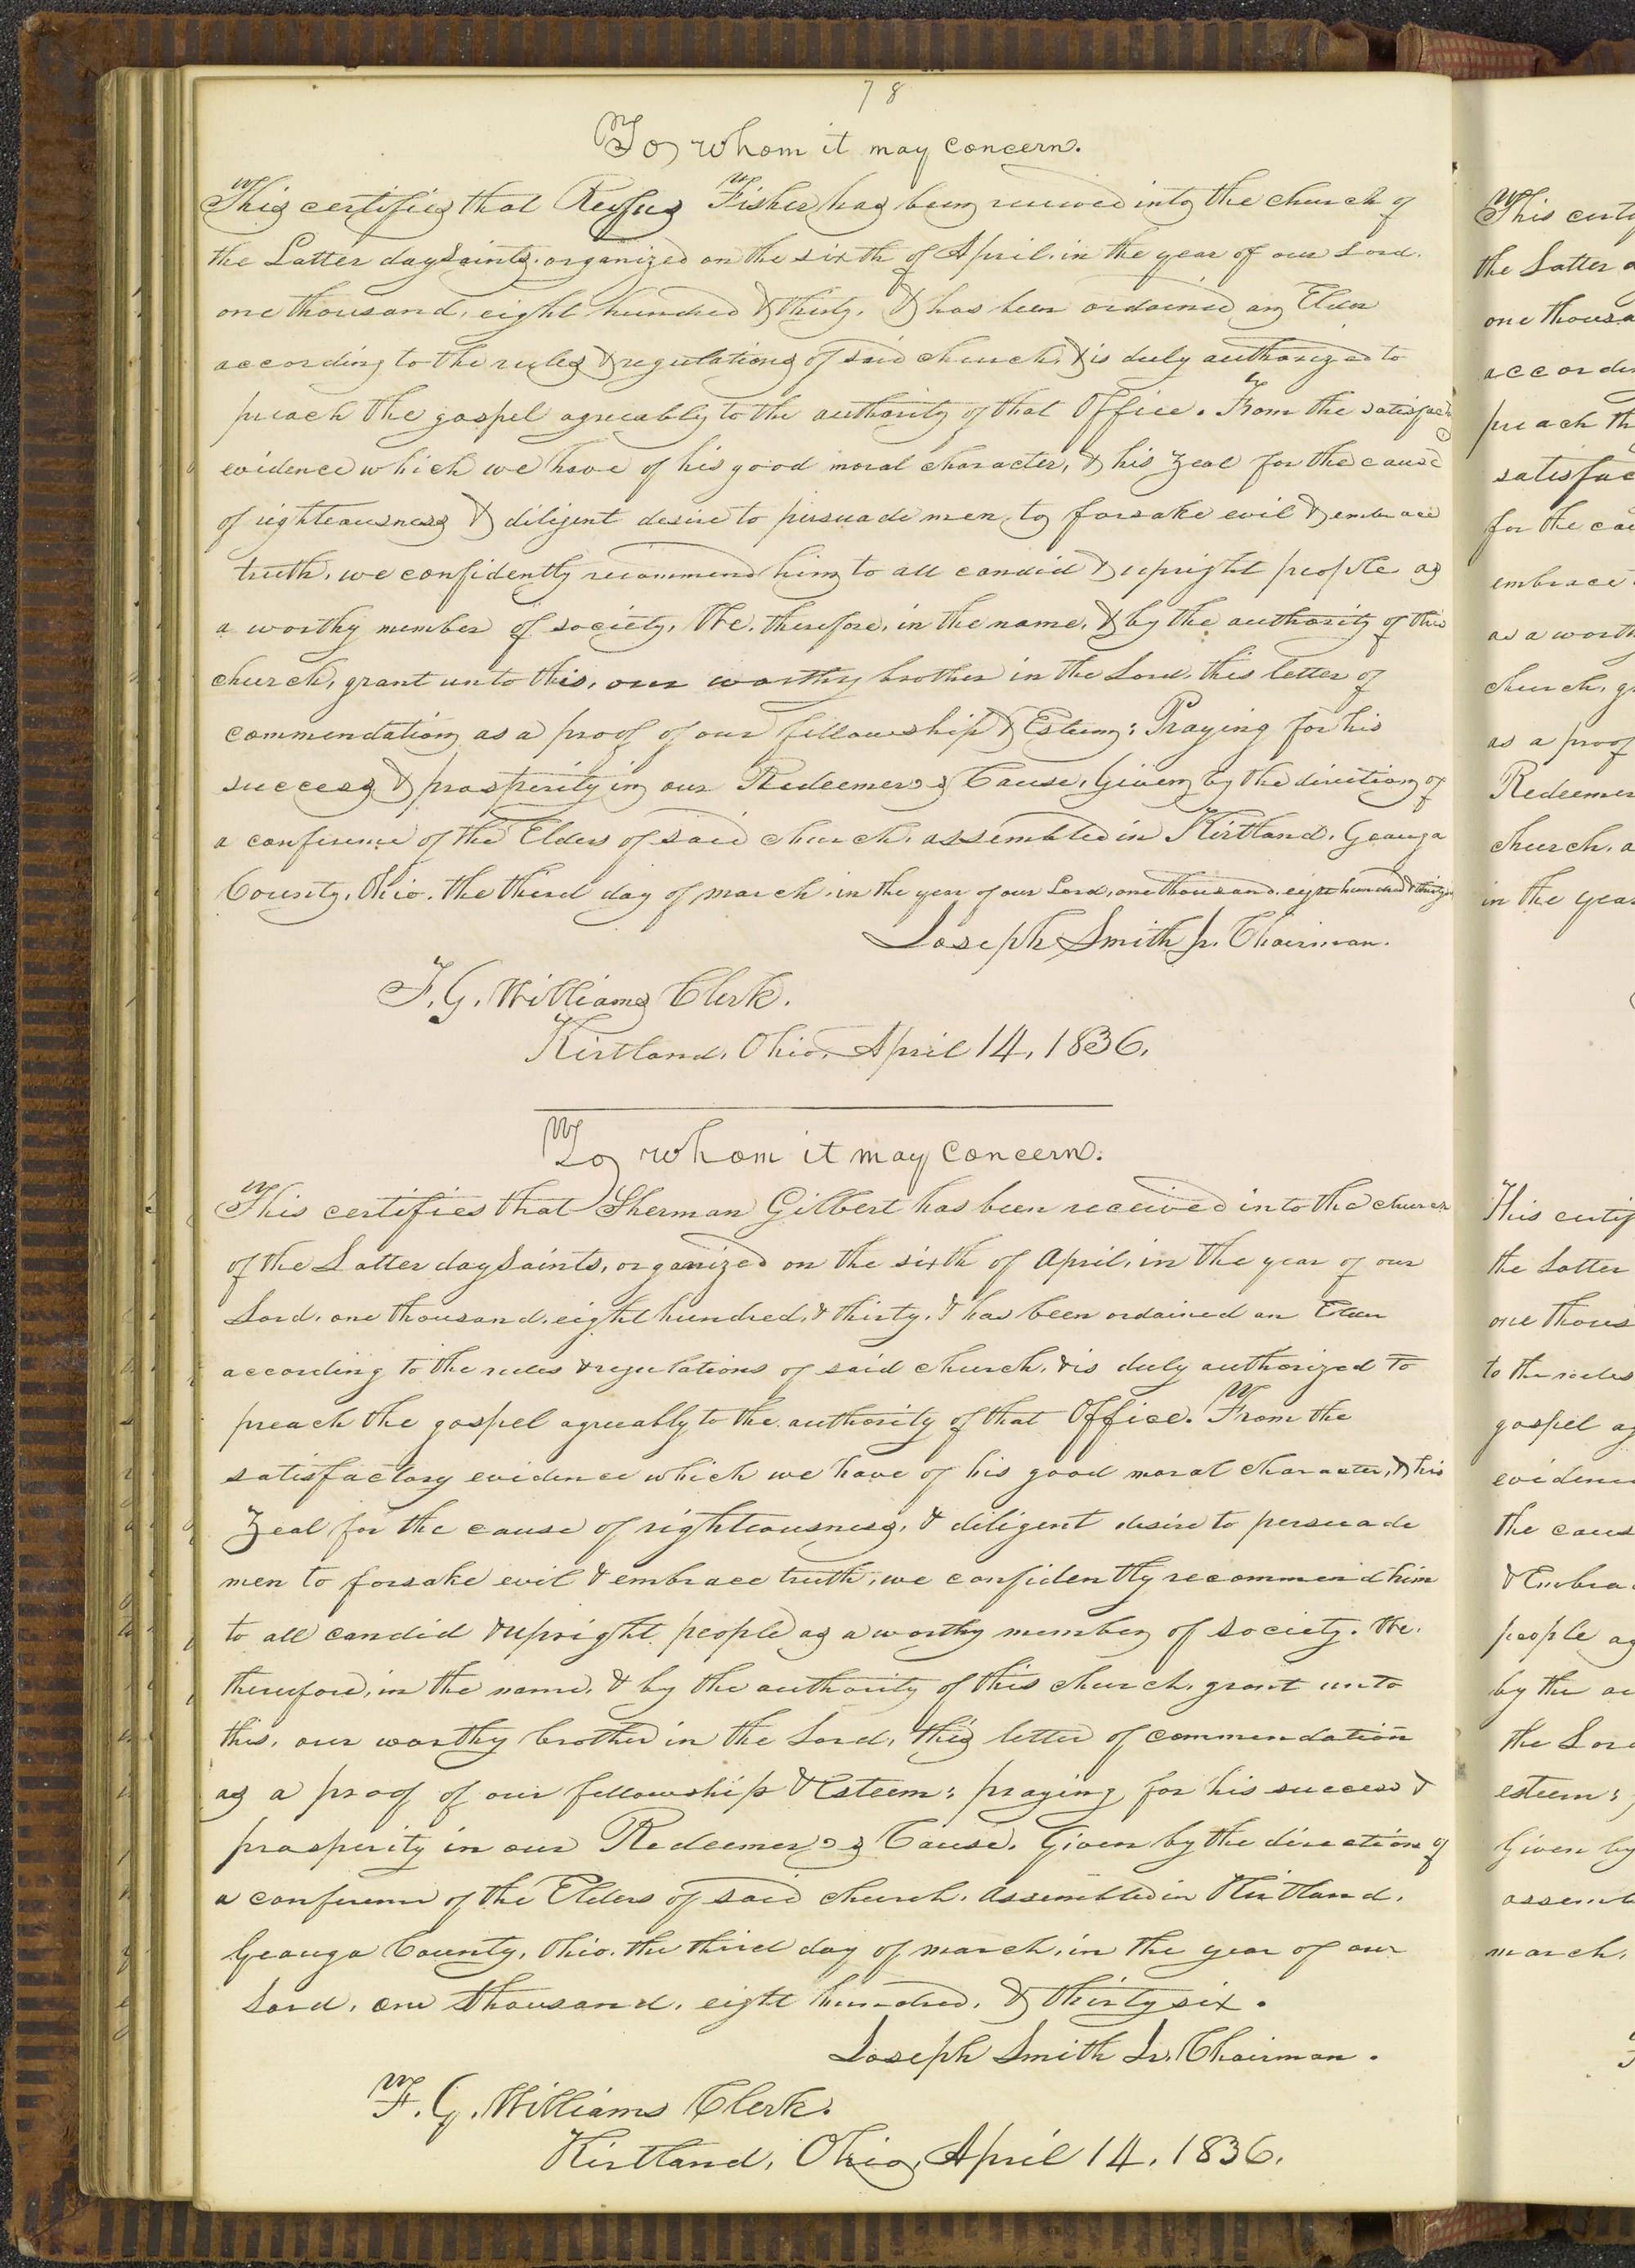 78
To whom it may concern.
This certifies that Rufus Fisher has been received into the church of
the Latter day Saints, organized on the sixth of April, in the year of our Lord,
one thousand, eight hundred & thirty, & has been ordained an Elder
according to the rules & regulations of said church, & is duly authorized to
preach the gospel agreeably to the authority of that Office. From the satisfac
evidence which we have of his good moral character, & his zeal for the cause
of righteousness & diligent desire to persuade men to forsake evil & embrace
truth, we confidently recommend him to all candid & upright people as
a worthy member of society, We, therefore, in the name, & by the authority of this
church, grant unto this, our worthy brother in the Lord, this letter of
commendation as a proof of our fellowship & Esteem: Praying for his
success & prosperity in our Redeemer's Cause, Given by the direction of
a conference of the Elders of said church, assembled in Kirtland, Geauga
County, Ohio, the third day of march, in the year of our Lord, one thousand, eight hundred &
Joseph Smith Jr. Chairman.
F. G. Williams Clerk.
Kirtland, Ohio, April 14, 1836.
To whom it may concern.
This certifies that Sherman Gilbert has been received into the church
of the Latter day Saints, organized on the sixth of April, in the year of our
Lord, one thousand, eight hundred, & thirty, & has been ordained an Elder
according to the rules & regulations of said church, & is duly authorized to
preach the gospel agreeably to the authority of that Office. From the
satisfactory evidence which we have of his good moral character, & his
Zeal for the cause of righteousness, & diligent desire to persuade
men to forsake evil & embrace truth, we confidently recommend him
to all candid & upright people as a worthy member of society. We,
therefore, in the name, & by the authority of this church, grant unto
this, our worthy brother in the Lord, this letter of commendation
as a proof of our fellowship & Esteem: praying for his success &
prosperity in our Redeemer's Cause. Given by the direction of
a conference of the Elders of said church, assembled in Kirtland,
Geauga County, Ohio, the third day of march, in the year of our
Lord, one thousand, eight hundred, & thirty six.
Joseph Smith Jr. Chairman.
F. G. Williams Clerk.
Kirtland, Ohio, April 14, 1836.
This certi
the Latter
one thousa
accordi
preach th
satisfac
for the cau
embrace
as a worth
church, g
as a proof
Redeemer
church, a
in the year
This certif
the Latter
one thous
to the rules
gospel ag
evidence
the caus
& Embra
people as
by the au
the Lord
esteem:
Given by
assemb
march,